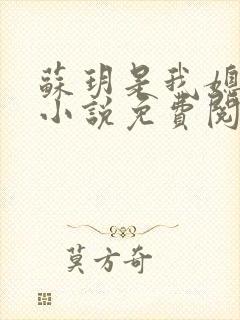 蘇玥是我媳
小說免費閱
莫方奇